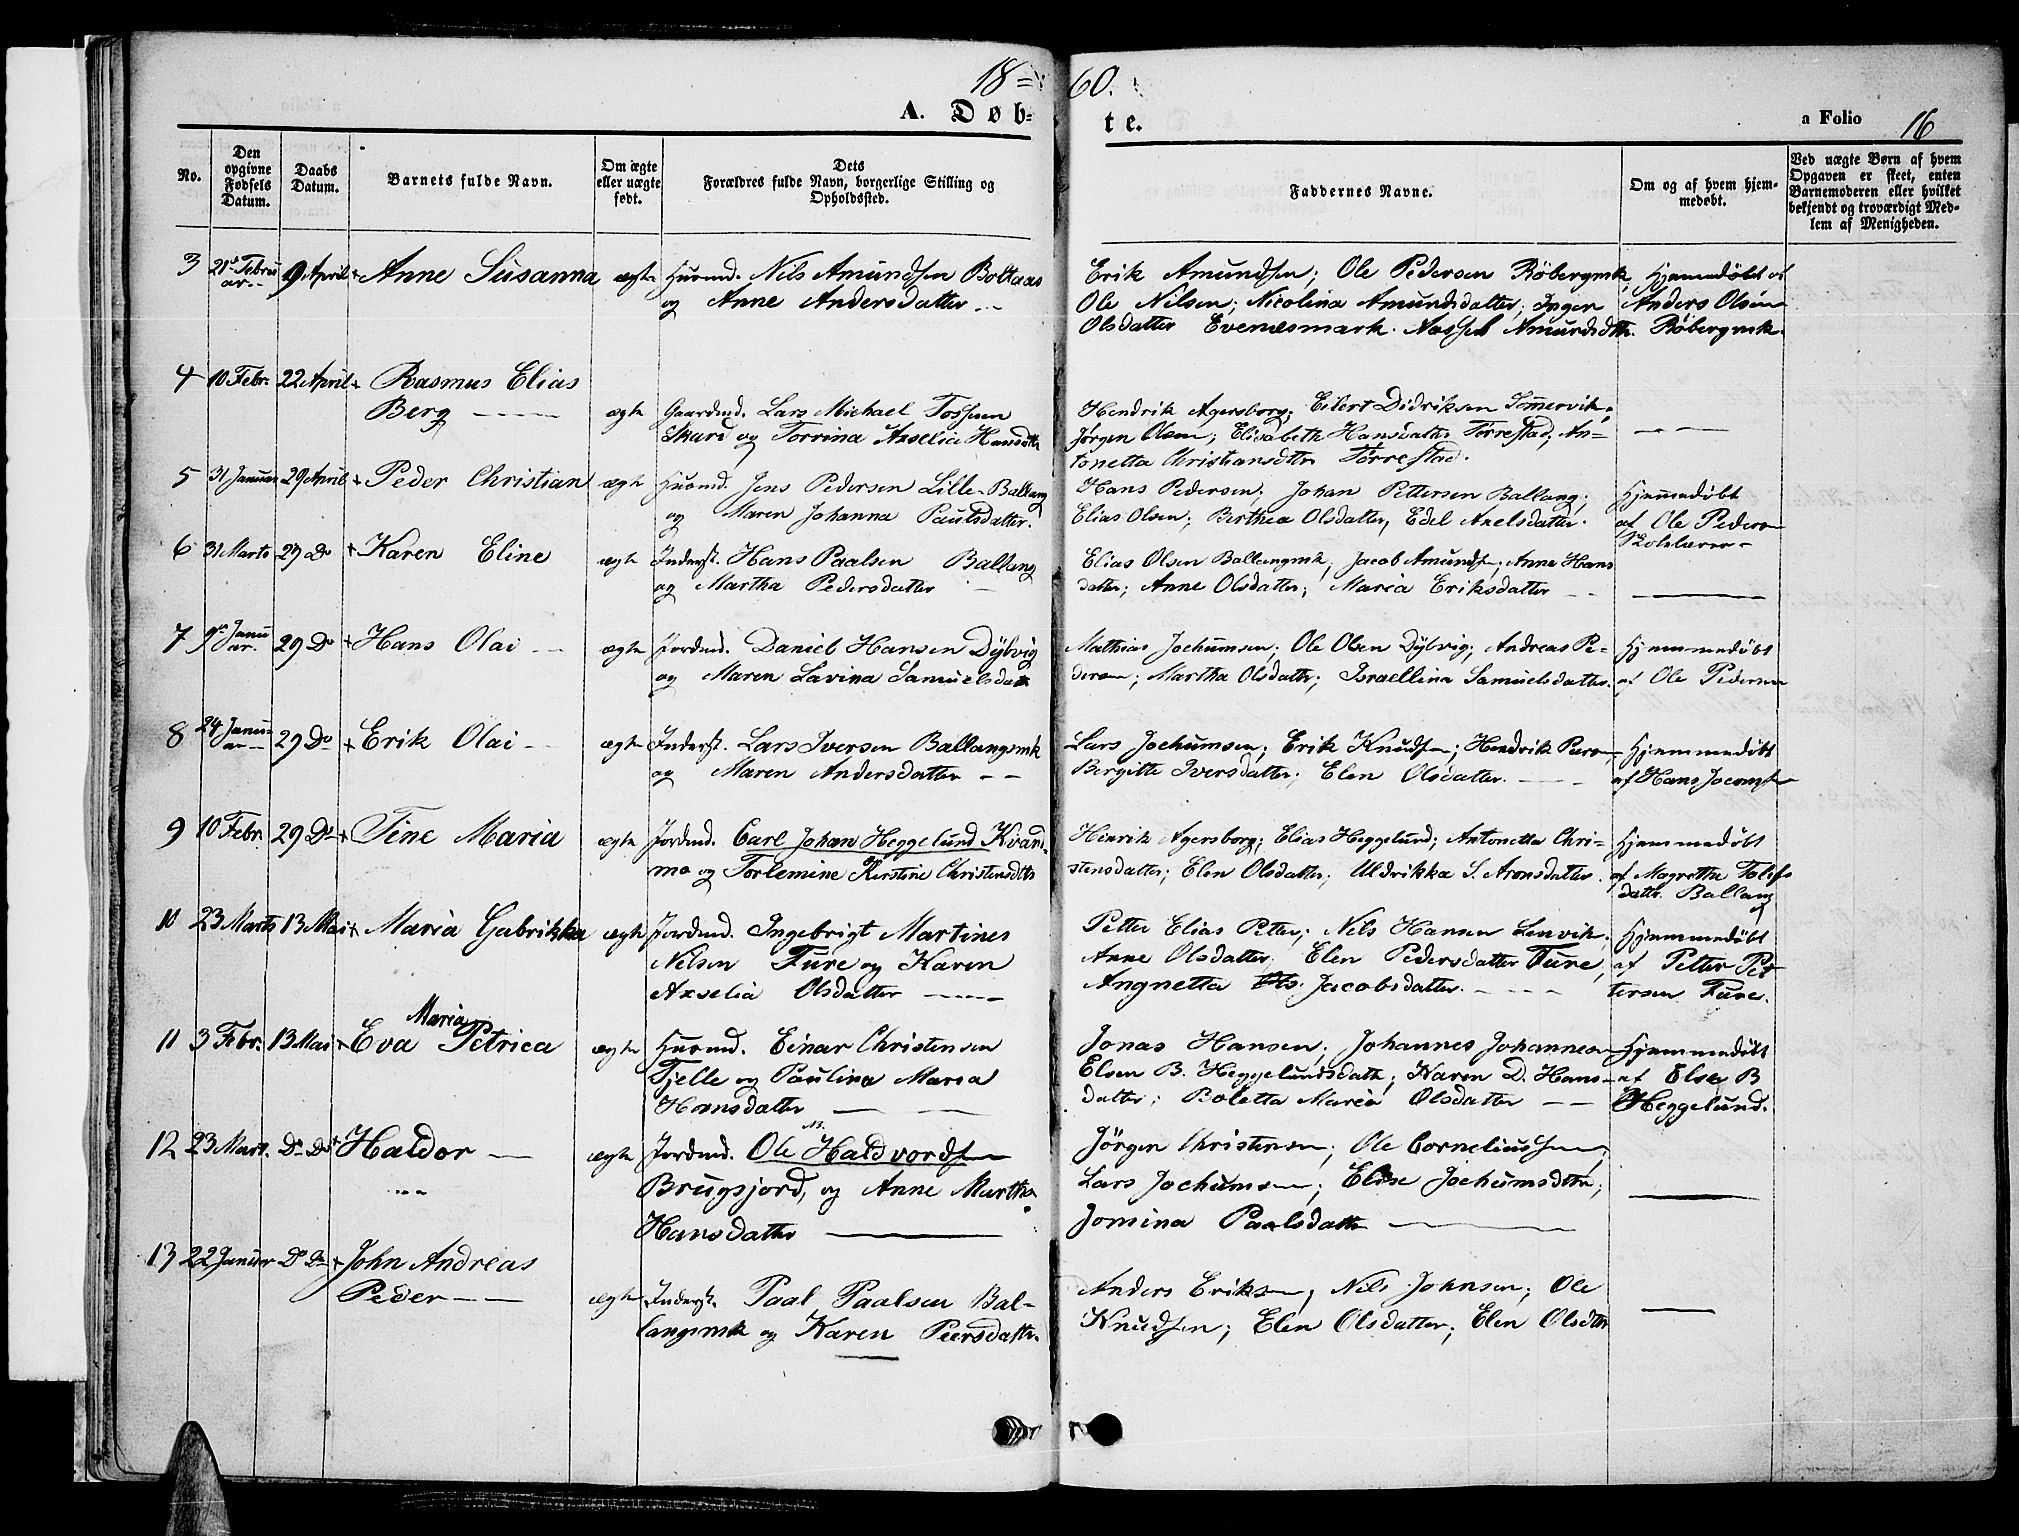 18=60.
A. Døb=te.
a Folio 16
No.
Den opgivne Fødsels Datum.
Daabs Datum.
Barnets fulde Navn.
Om ægte eller uægte født.
Dets Forældres fulde Navn, borgerlige Stilling og Opholdssted.
Faddernes Navne.
Om og af hvem hjemmedøbt.
Ved uægte Børn af hvem Opgaven er skeet, enten Barnemoderen eller hvilket bekjendt og troværdigt Medlem af Menigheden.
3 21de Februar 9 April + Anne Susanna ægte Huusmd. Nils Amundsen Boltaas
og Anne Andersdatter
Erik Amundsen; Ole Pedersen Röbergmk;
Ole Nilsen; Nicolina Amundsdatter; Inger
Olsdatter Evenæsmark. Amundsdtr.
Hjemmedöbt af
Anders Olsen
Röbergmk.
4 10 Febr. 22 April + Rasmus Elias
Berg ægte Gaardmd. Lars Michael Tossen
Skard og Torrina Axselia Hansdtr
Hendrik Agersborg; Eilert Didriksen Sommervik;
Jørgen Olsen; Elisabeth Hansdatter Tørrestad; An=
tonetta Christiansdtr Tørrestad.
5 31 Januar 29 April + Peder Christian ægte Huusmd. Jens Pedersen Lille-Ballang
og Maren Johanna Paulsdatter.
Hans Pedersen; Johan Pettersen Ballang;
Elias Olsen; Berthea Olsdatter, Edel Axelsdatter.
Hjemmedöbt
af Ole Pedersen
Skolelærer
6 31 Marts 29 Do + Karen Eline ægte Inderst. Hans Paalsen Ballang
og Martha Pedersdatter
Elias Olsen Ballangmk, Jacob Amundsn; Anne Hans
datter; Anne Olsdatter; Maria Eriksdatter
7 9de Januar. 29 Do + Hans Olai ægte Jordmd. Daniel Hansen Dÿbvig
og Maren Lavina Samuelsdatter
Mathias Jochumsen; Ole Olsen Dÿbvig; Andreas Pe=
dersen; Martha Olsdattr; Israellina Samuelsdatter.
Hjemmedöbt
af Ole Pedersen
8 24 Januar 29 Do + Erik Olai ægte Inderst. Lars Iversen Ballangsmk
og Maren Andersdatter
Lars Jochumsen; Erik Knudsen; Hendrik Peersn
Bergitte Iversdatter; Elen Olsdatter.
Hjemmedöbt
af Hans
9 10 Febr. 29 Do + Tine Maria ægte Jordmd. Carl Johan Heggelund Kvand=
mo og Torlemine Kirstine Christensdtr
Hinrik Agersborg; Elias Heggelund; Antonetta Chri=
stensdatter; Elen Olsdatter; Uldrikka S. Aronsdatter.
Hjemmedöbt
af Magretha
datter Ballang
10 23 Marts 13 Mai + Maria Gabrikka ægte Jordmd. Ingebrigt Martines
Nilsen Fure og Karen
Axselia Olsdatter
Petter Elias Peter; Nils Hansen Lenvik;
Anne Olsdatter; Elen Pedersdatter Fure,
Angnetta Jacobsdatter.
Hjemmedöbt
af Petter Pet
tersen Fure.
11 3 Febr. 13 Mai + Eva Maria Petrica ægte Huusmd. Einar Christensen
Tjelle og Paulina Maria
Hansdatter
Jonas Hansen; Johannes Johannesen
Elsen B. Heggelundsdatter; Karen D. Hans=
datter; Boletta Maria Olsdatter
Hjemmedöbt
af Else B
Heggelund.
12 23 Mart. Do Do + Haldor ægte Jordmd. Ole M. Haldvordsen
Brugsjord, og Anne Martha
Hansdatter
Jörgen Christensen; Ole Corneliussen;
Lars Jochumsen; Elise Jochumsdtr;
Jomina Paalsdattr
13 22 Januar Do Do + John Andreas
Peder ægte Inderst. Paal Paalsen Bal=
langsmk og Karen Peersdattr.
Anders Eriksen; Nils Johnsen; Ole
Knudsen; Elen Olsdatter; Elen Olsdtr